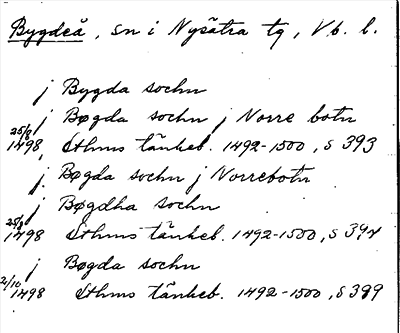 Bygdeå, sn i Nysätra tg, Vb. l.
j Bygda sochn
j Bøgda sochn j Norre botn
25/8 1498, Sthms tänkeb. 1492-1500, s 393
j Bøgda sochn j Norrebotn
j Bøgdha sochn
25/8 1498 Sthms tänkeb. 1492-1500, s 394
j Bøgda sochn
2/10 1498 Sthms tänkeb. 1492-1500, s 399